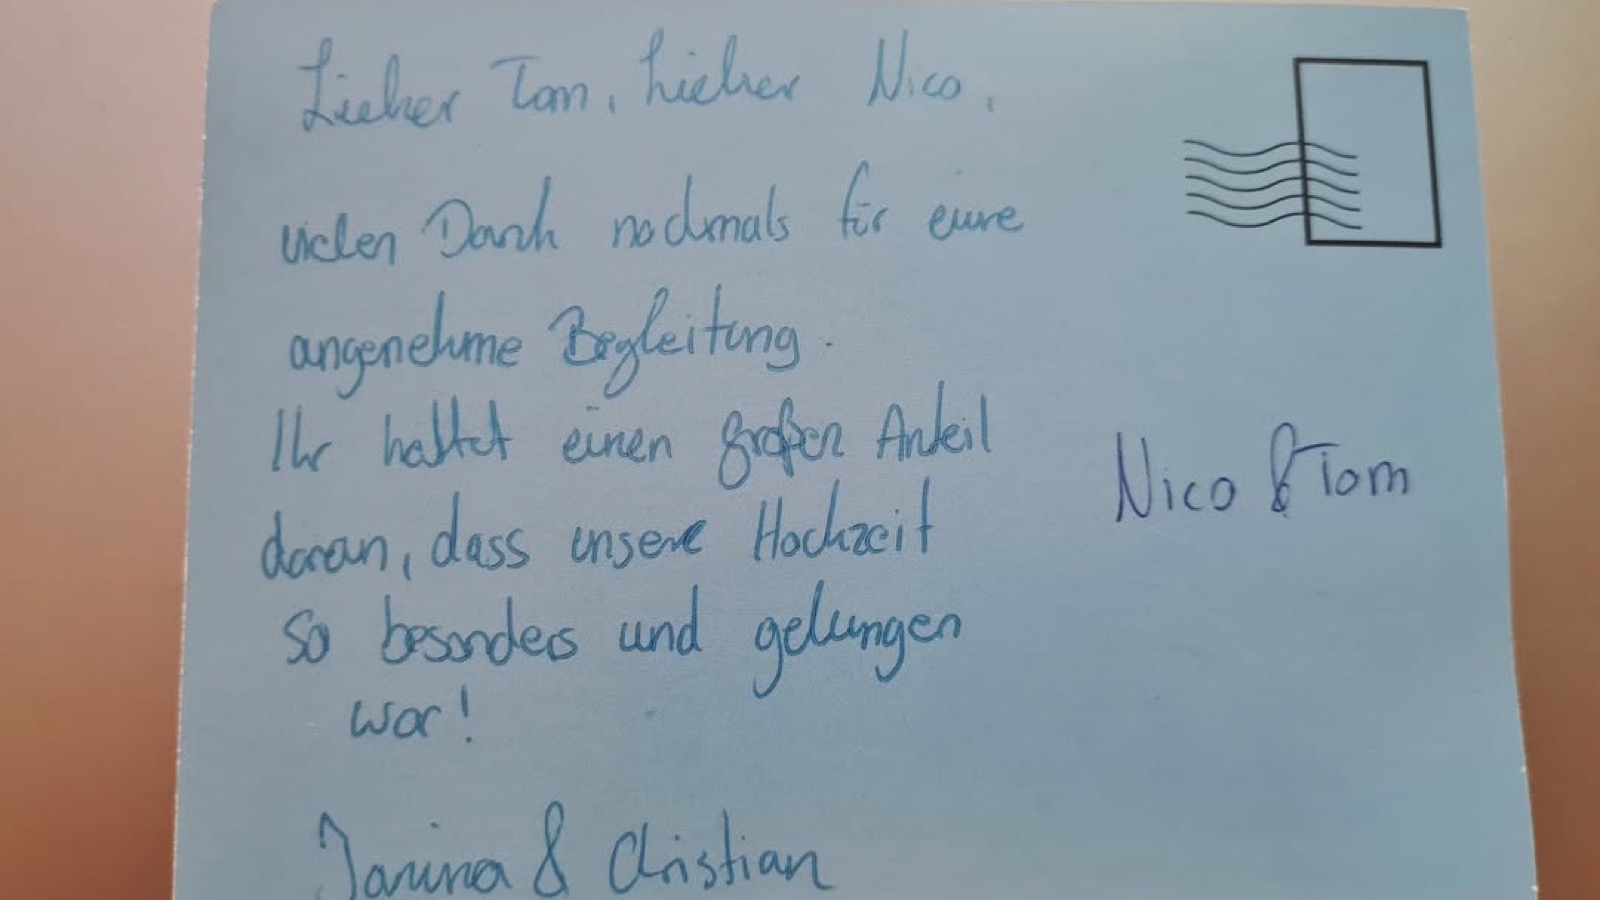 Lieber Tom, Lieber Nico,
vielen Dank nochmals für eure
angenehme Begleitung.
Ihr hattet einen großen Anteil
daran, dass unsere Hochzeit
so besonders und gelungen
war!
Janina & Christian
Nico & Tom